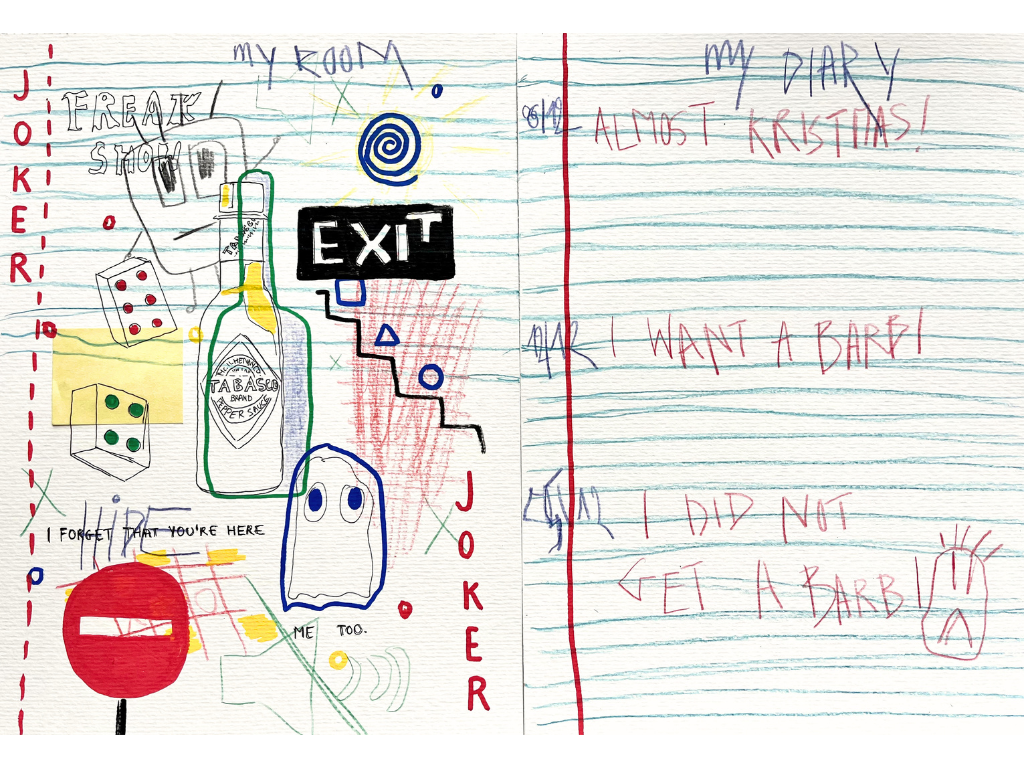 MY ROOM
JOKER
FREAK
SHOW
EXIT
TABASCO
BRAND
PEPPER SAUCE
HiPE
I FORGET THAT YOU'RE HERE
ME TOO.
JOKER
MY DIARY
ALMOST KRISTMAS!
I WANT A BARBI
I DID NOT
GET A BARBI